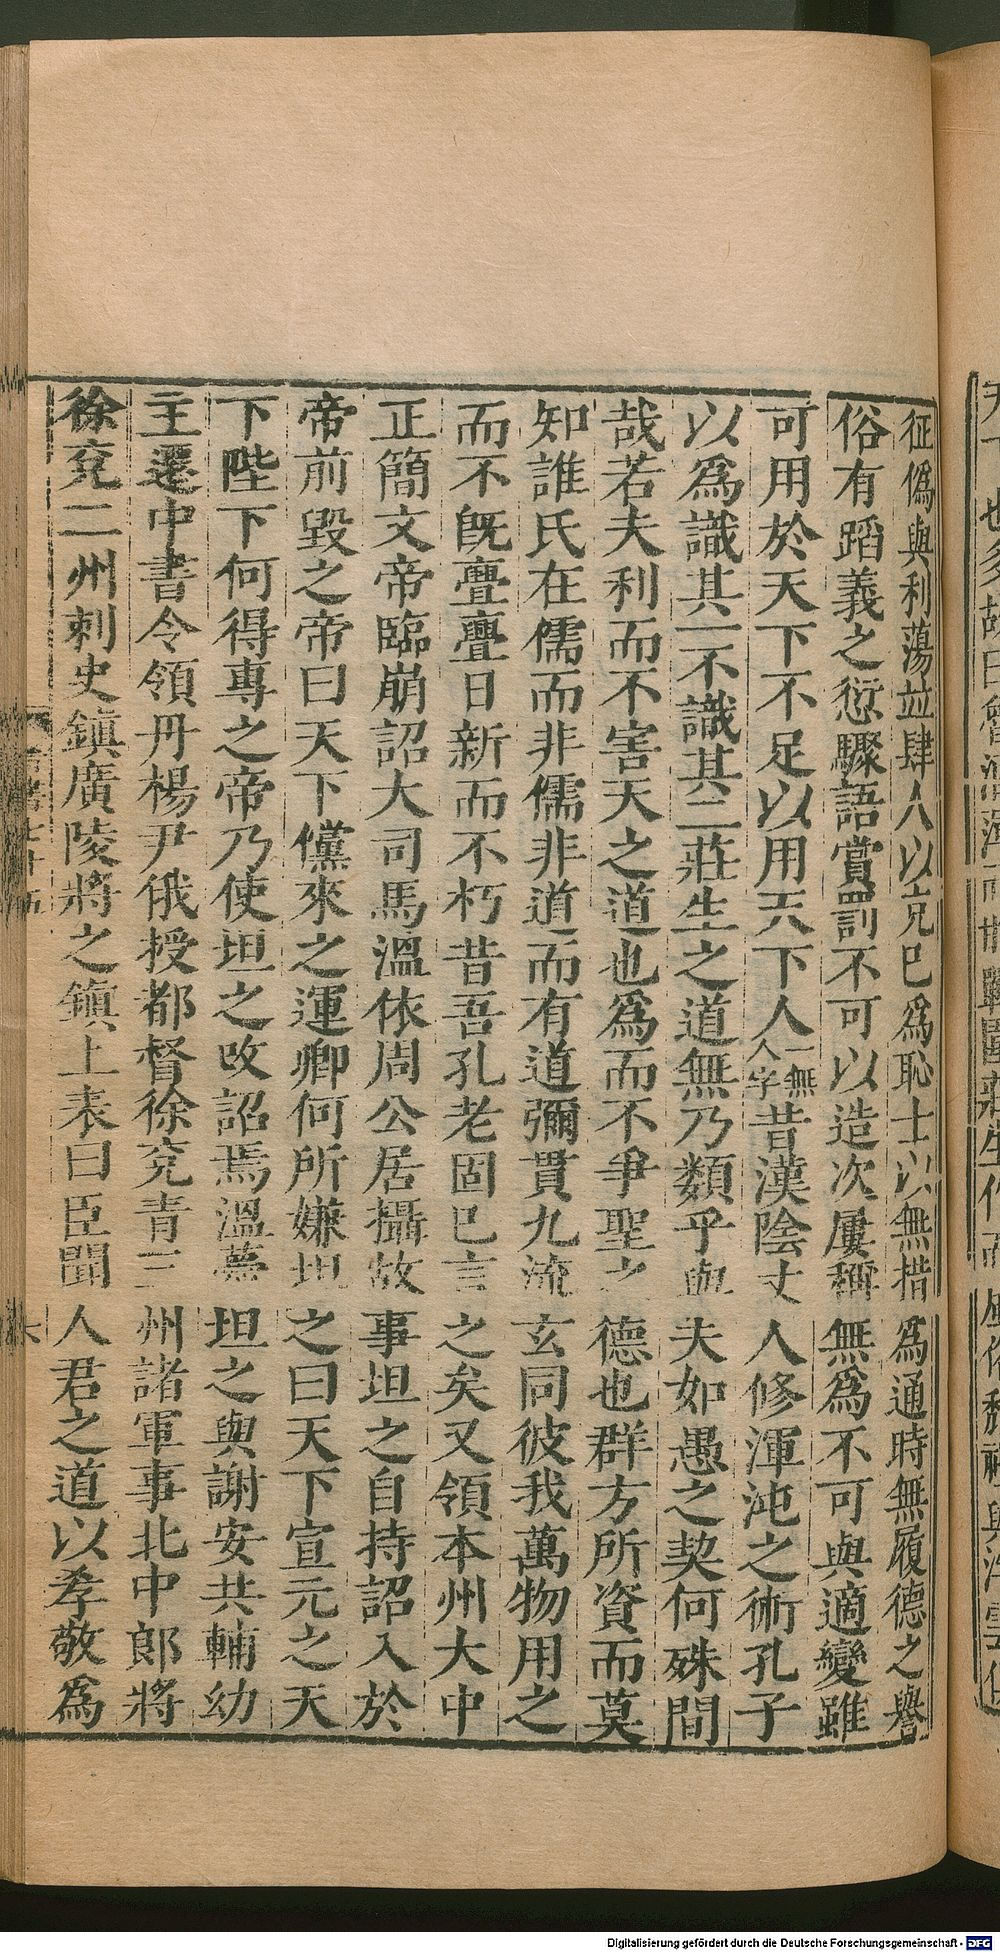 征僞與利蕩並肆人以克巳爲恥士以無措爲通時無履德之譽
俗有蹈義之愆驟語賞罰不可以造次屢稱無爲不可與適變雖
可用於天下不足以用天下人一無人字昔漢陰丈人修渾沌之術孔子
以爲識其一不識其二莊生之道無乃類乎與夫如愚之契何殊間
哉若夫利而不害天之道也爲而不爭聖之德也群方所資而莫
知誰氏在儒而非儒非道而有道彌貫九流玄同彼我萬物用之
而不旣亹亹日新而不朽昔吾孔老固已言之矣又領本州大中
正簡文帝臨崩詔大司馬溫依周公居攝故事坦之自持詔入於
帝前毀之帝曰天下儻來之運卿何所嫌坦之曰天下宣元之天
下陛下何得專之帝乃使坦之改詔焉溫薨坦之與謝安共輔幼
主遷中書令領丹楊尹俄授都督徐兗青三州諸軍事北中郎將
徐兗二州刺史鎮廣陵將之鎮上表曰臣聞人君之道以孝敬爲
Digitalisierung gefördert durch die Deutsche Forschungsgemeinschaft - DFG